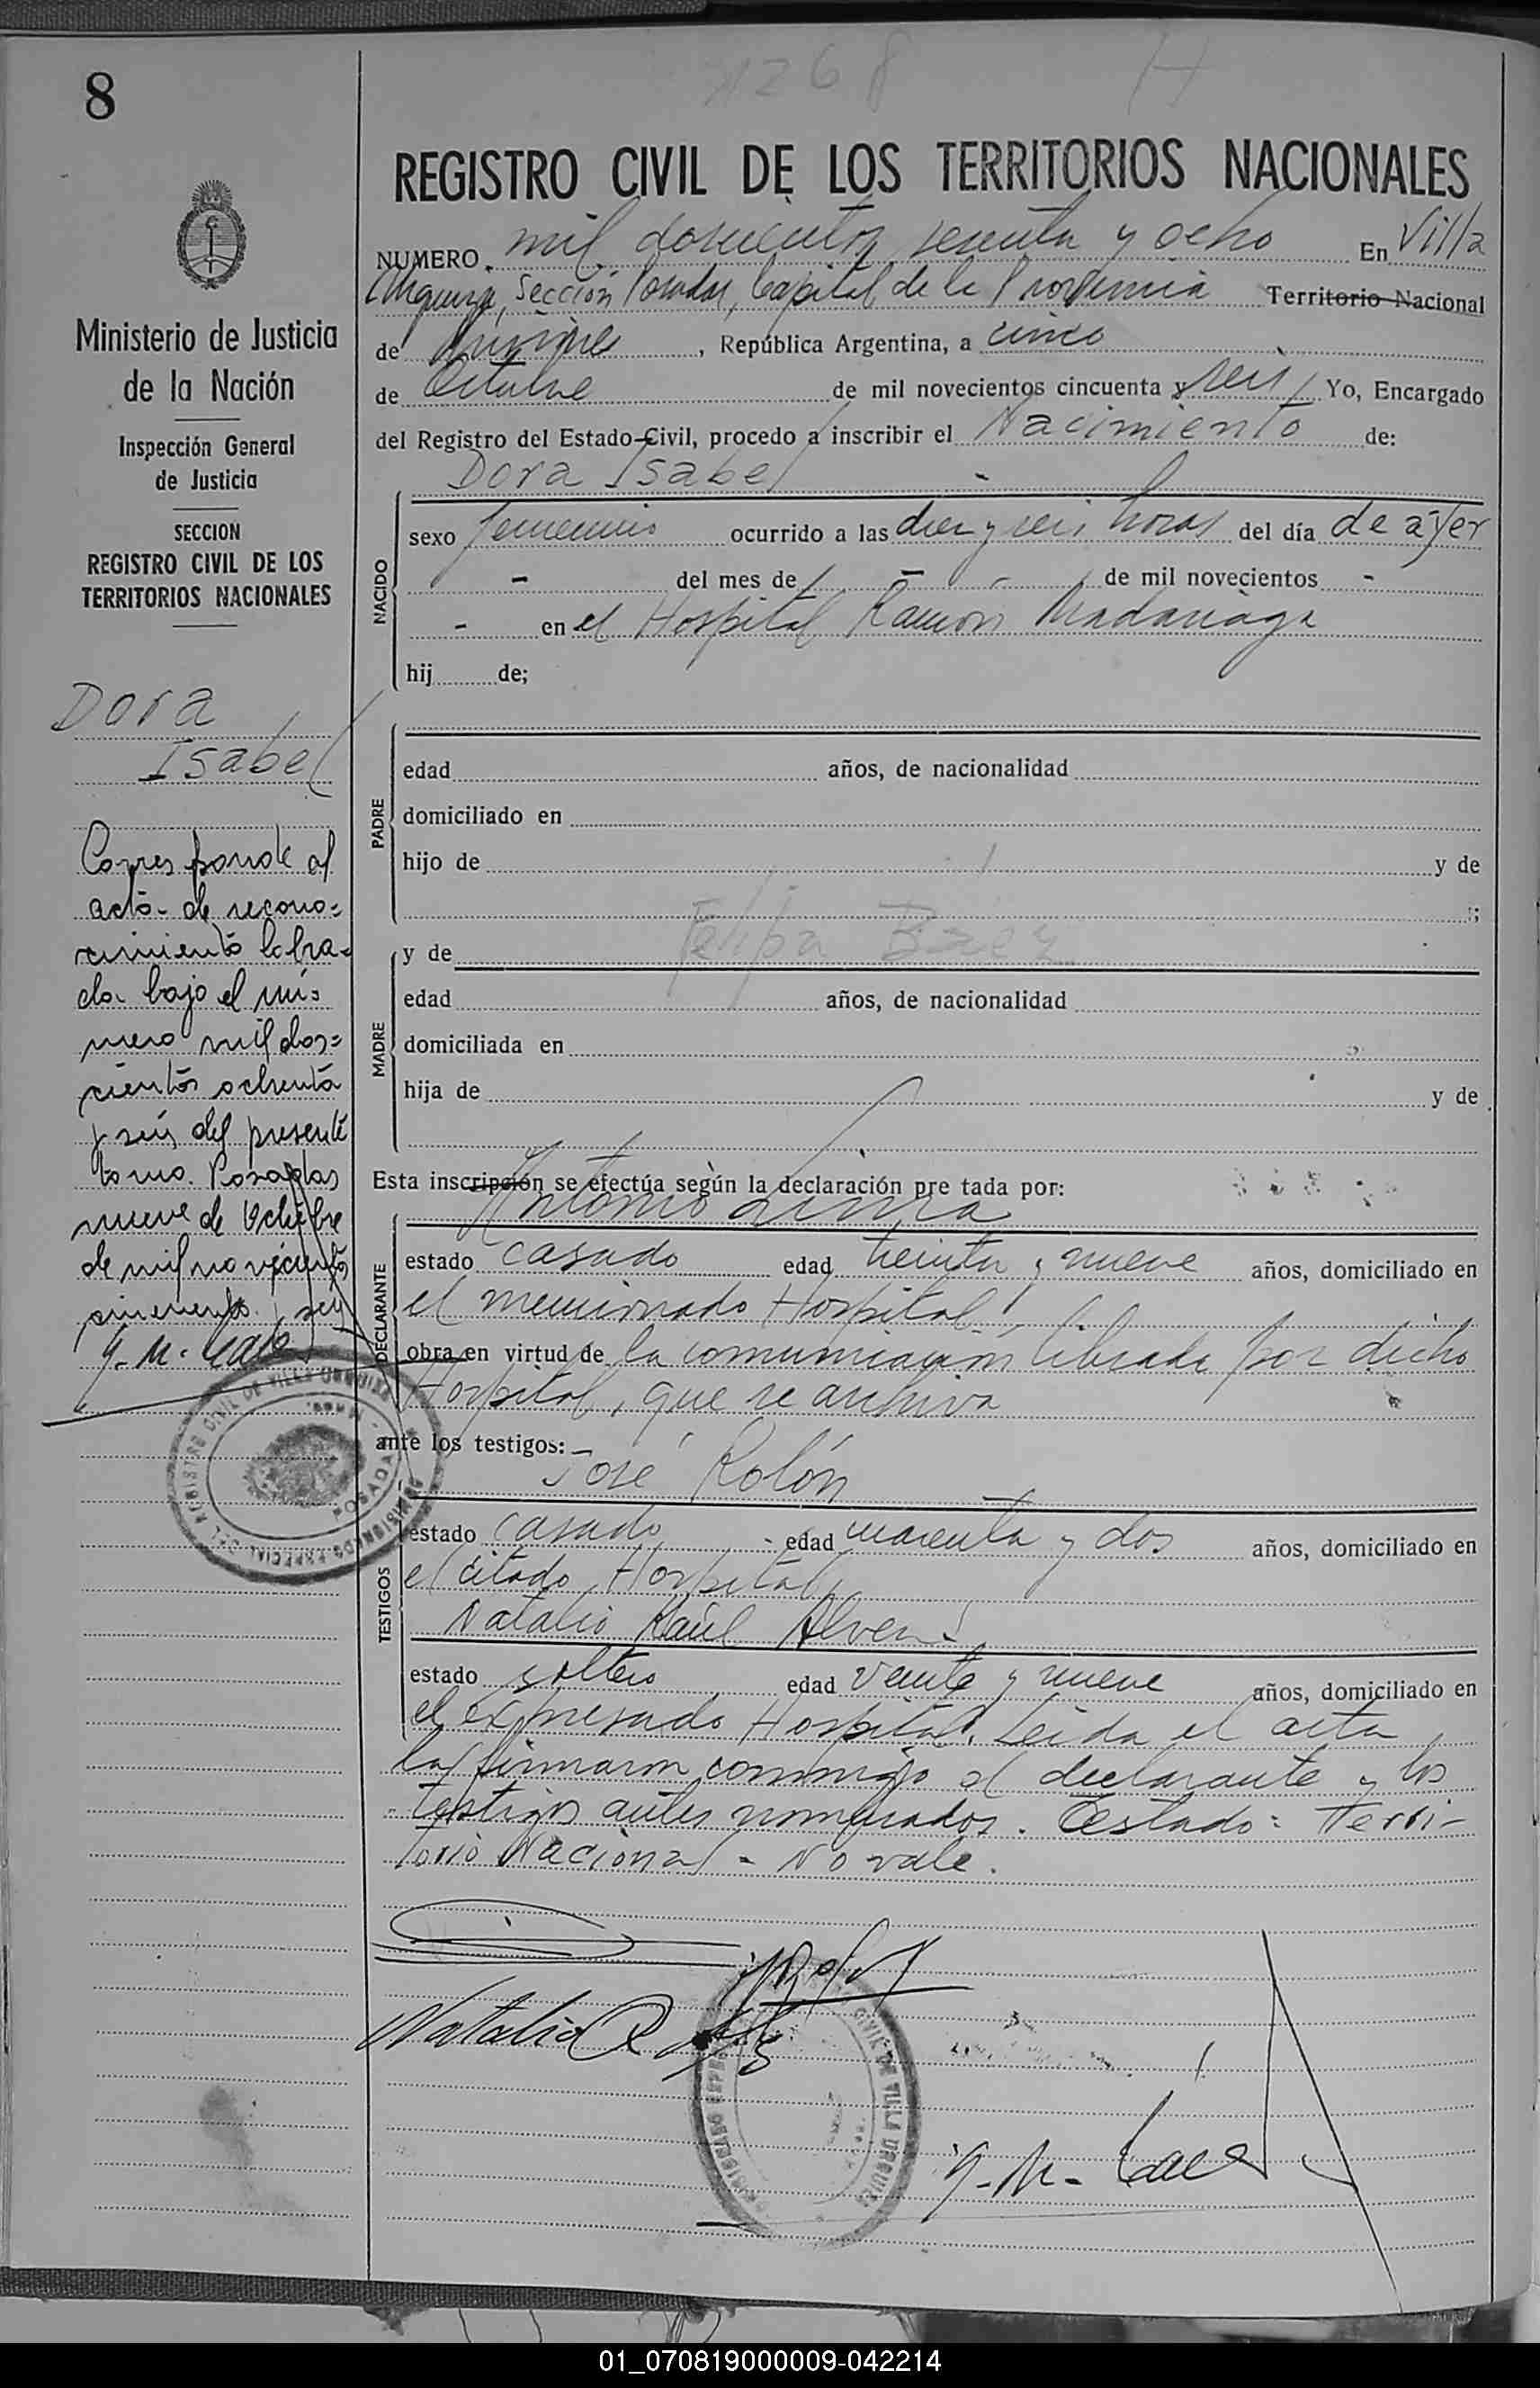 1268 H
8
REGISTRO CIVIL DE LOS TERRITORIOS NACIONALES
NUMERO mil doscientos sesenta y ocho En Villa
Urquiza, Sección Posadas, Capital de la Provincia Territorio Nacional
de Misiones, República Argentina, a cinco
de Octubre de mil novecientos cincuenta y seis, Yo, Encargado
del Registro del Estado Civil, procedo a inscribir el Nacimiento de:
Dora Isabel -
NACIDO
sexo femenino ocurrido a las diez y seis horas del día de ayer
- del mes de - de mil novecientos -
- en el Hospital Ramón Madariaga
hij de;
PADRE
edad años, de nacionalidad
domiciliado en
hijo de y de
;
MADRE
y de Felipa Baez
edad años, de nacionalidad
domiciliada en
hija de y de
Esta inscripción se efectúa según la declaración pre tada por:
Antonio
DECLARANTE
estado casado edad treinta y nueve años, domiciliado en
el mencionado Hospital
obra en virtud de la comunicación librada por dicho
Hospital, que se archiva
ante los testigos:
José Rolón
TESTIGOS
estado casado - edad cuarenta y dos años, domiciliado en
el citado Hospital,
Natalio Raúl
estado soltero edad veinte y nueve años, domiciliado en
el expresado Hospital. Leída el acta
la firmaron conmigo el declarante y los
testigos antes nombrados. Testado: Terri-
torio Nacional - No vale.
Natalio R
Ministerio de Justicia
de la Nación
Inspección General
de Justicia
SECCION
REGISTRO CIVIL DE LOS
TERRITORIOS NACIONALES
Dora
Isabel
Corresponde al
acta de recono=
cimiento labra=
da bajo el nú=
mero mil dos=
cientos ochenta
y seis del presente
tomo. Posadas
nueve de Octubre
de mil novecientos
cincuenta y seis
01_070819000009-042214